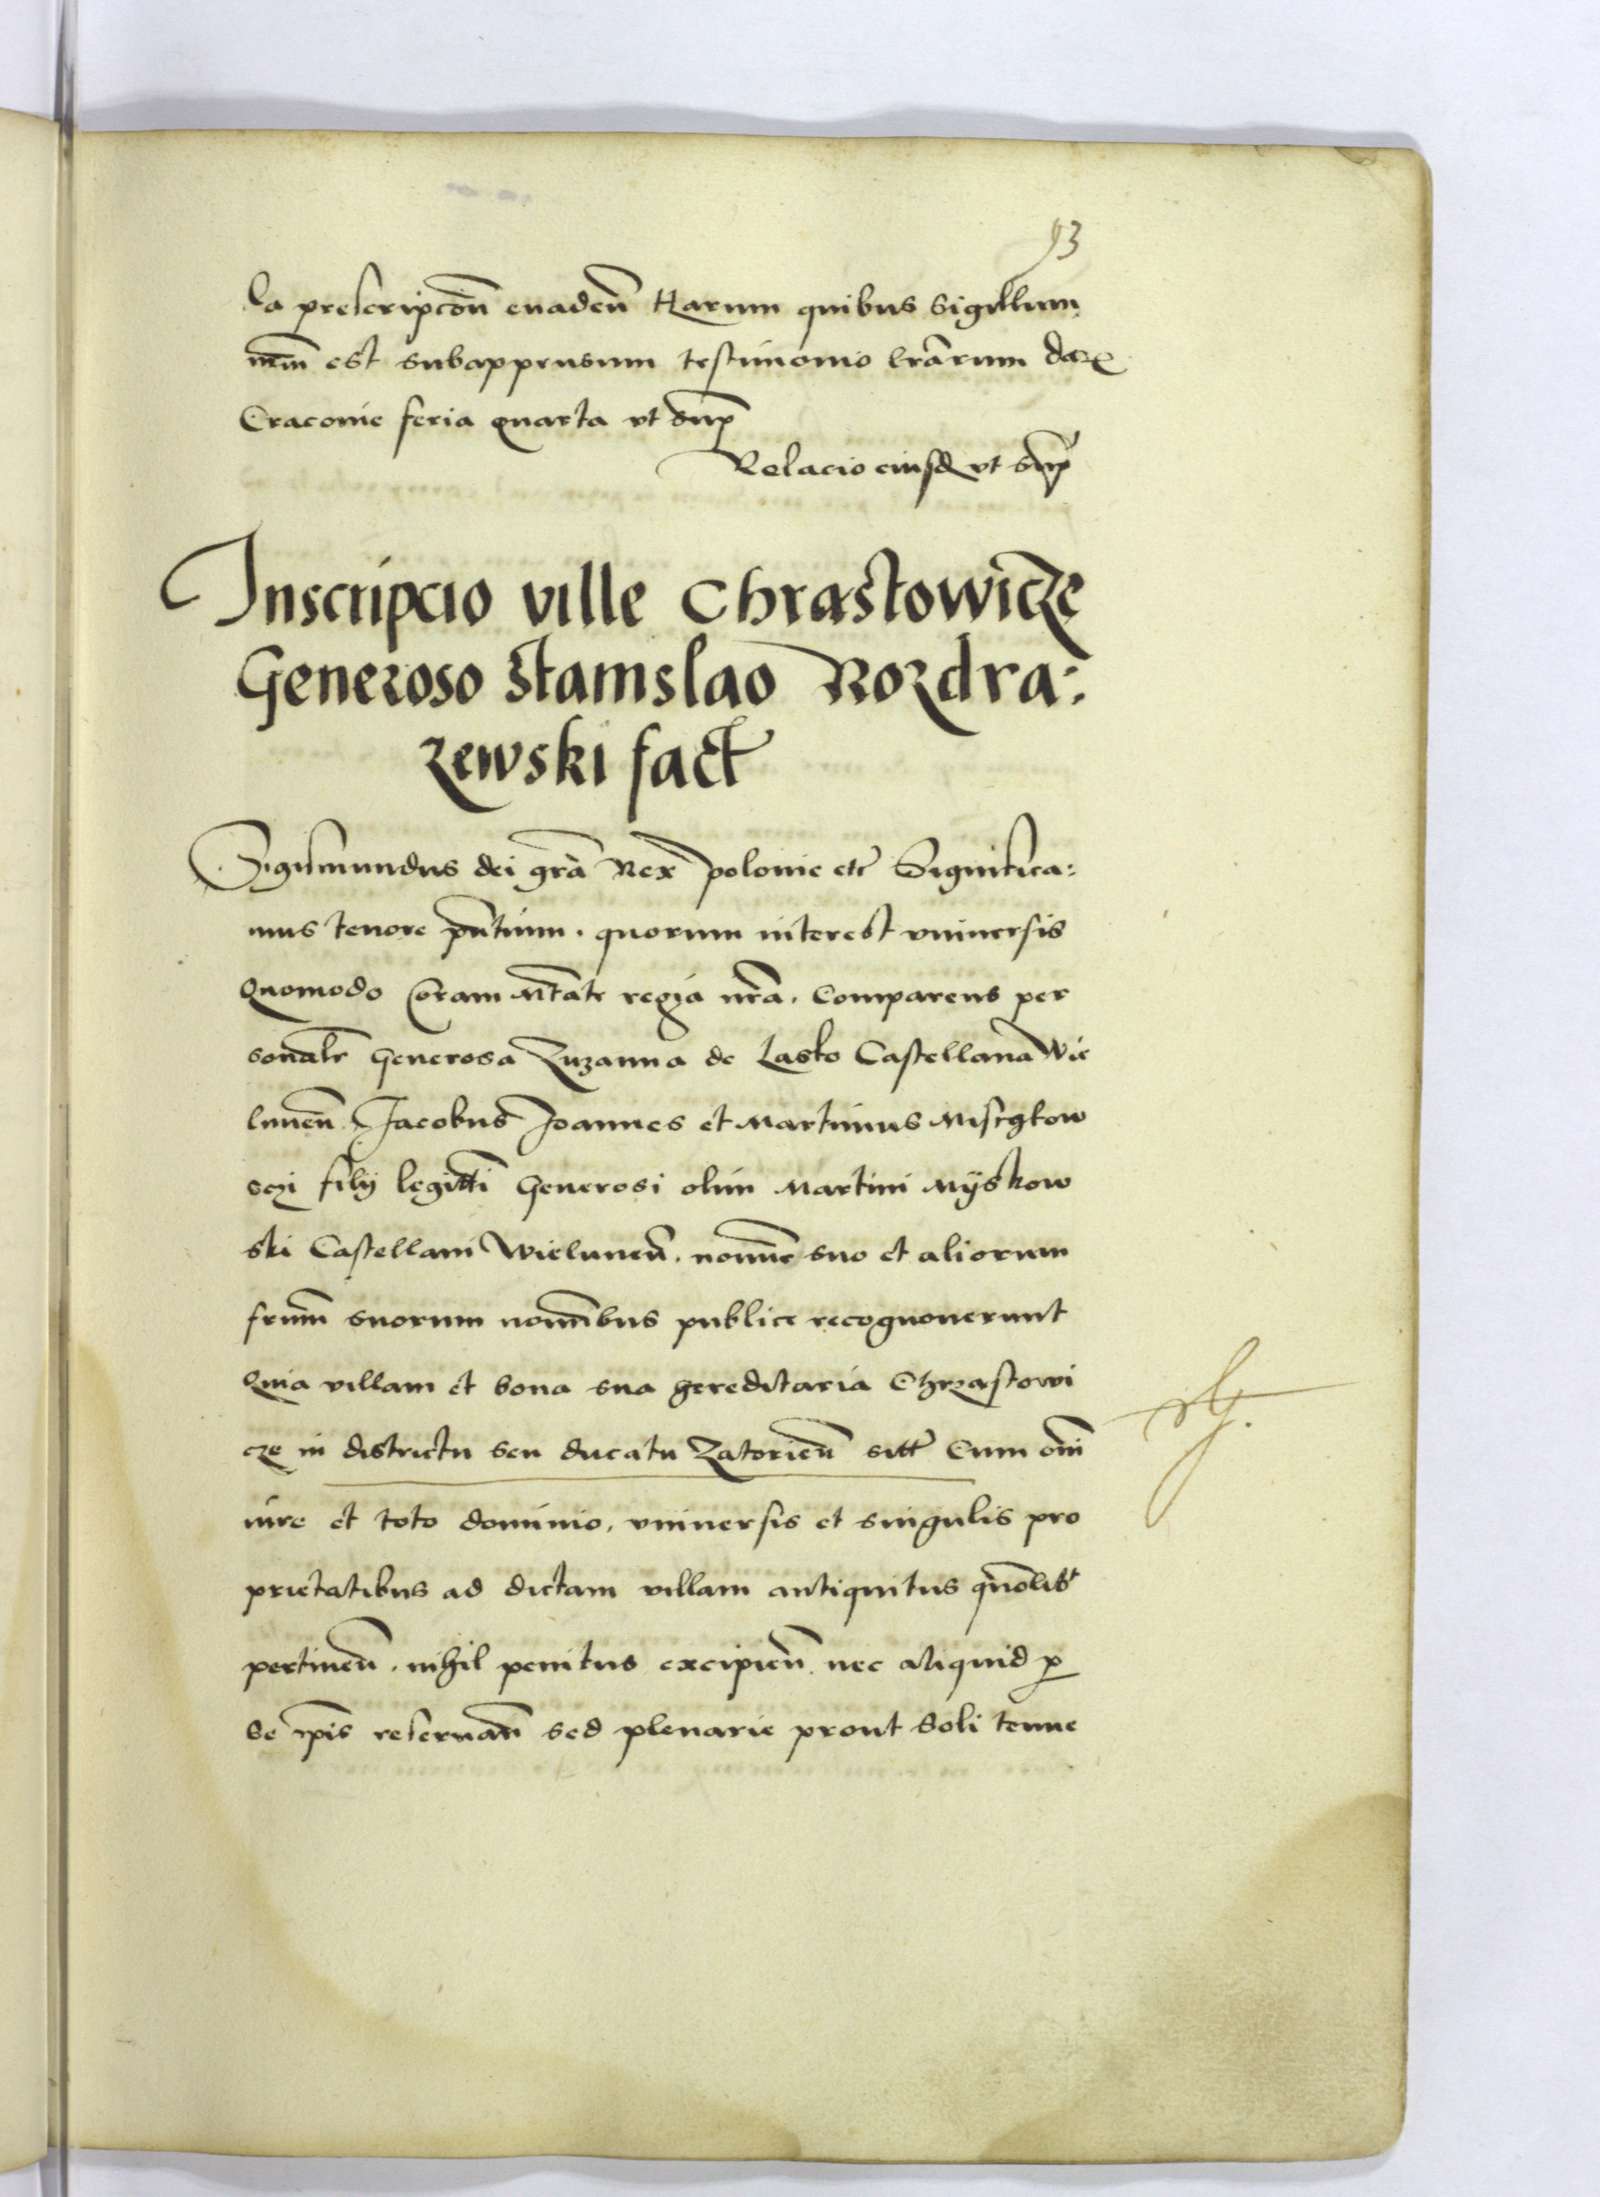 93
la prescripcon euaden Harum quibus Sigillum
nrm est subappensum testimonio lrarum
Cracouie feria quarta vt sup
Relacio eiusd vt sup
Inscripcio ville Chrastowicze
Generoso Stanislao Rozdra:
zewski fact
Sigismundus dei gra Rex polonie etc Significa:
mus tenore pntium. quorum interest vniuersis
Quomodo Coram Mtate regia nra. Comparens per
sonalr Generosa Zuzanna de Lasko Castellana Wie
lunen Jacobus Joannes et Martinus Misczkow
sczi filij legitti Generosi olim Martini Mijskow
ski Castellani Wielunen. nomine suo et aliorum
frum suorum nominibus publice recognouerunt
Quia villam et bona sua hereditaria Chrzastowi
cze in districtu seu ducatu Zatorien sitt Cum omi
iure et toto dominio. vniuersis et singulis pro
prietatibus ad dictam villam antiquitus quolibt
pertinen. nihil penitus excipien. nec aliquid p
se ipis reseruan sed plenarie prout soli tenue